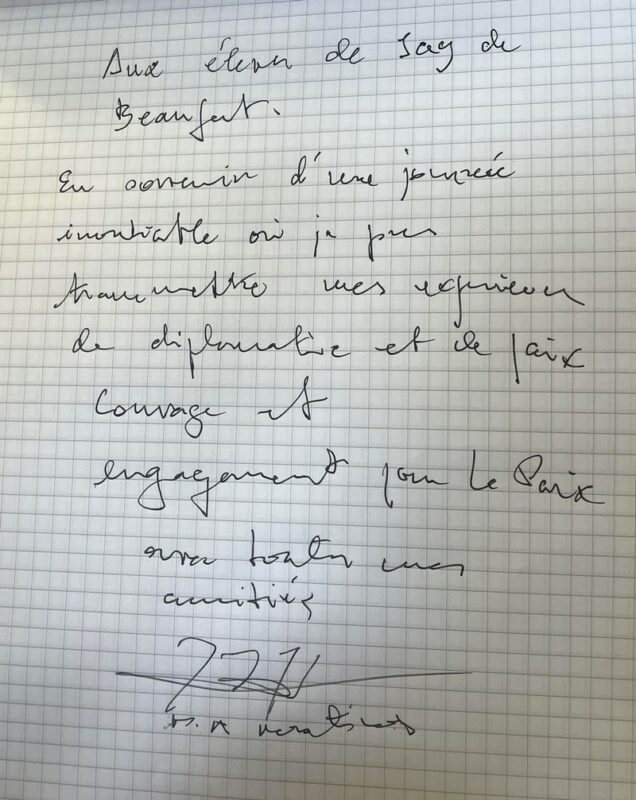 Aux élèves de Say de
Beaufort.
En souvenir d'une journée
inoubliable où je pus
transmettre mes expériences
de diplomatie et de paix
Courage et
engagement pour la Paix
avec toutes mes
amitiés